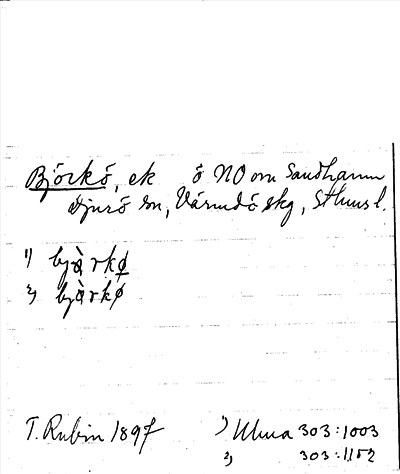 Björkö, ek ö NO om Sandhamn
Djurö sn, Värmdö skg, Sthms l.
1) bjàrkø
2) bjàrkø
T. Rubin 1897 1) Ulma 303:1003
2) 303:1152